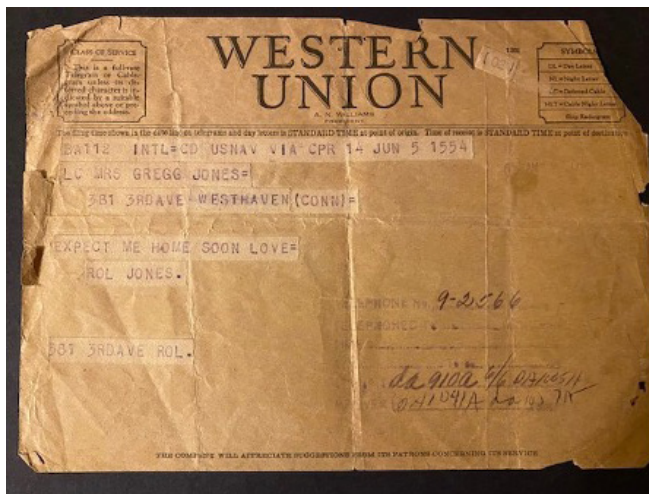 CLASS OF SERVICE
This is a full-rate
Telegram or Cable-
gram unless its de-
ferred character is in-
dicated by a suitable
symbol above or pre-
ceding the address.
WESTERN
UNION
A. N. WILLIAMS
PRESIDENT
SYMBOLS
DL=Day Letter
NL=Night Letter
LC=Deferred Cable
NLT=Cable Night Letter
Ship Radiogram
The filing time shown in the date line on telegrams and day letters is STANDARD TIME at point of origin. Time of receipt is STANDARD TIME at point of destination
BA112 INTL=CD USNAV VIA CPR 14 JUN 5 1554
LC MRS GREGG JONES=
381 3RDAVE WESTHAVEN (CONN)=
EXPECT ME HOME SOON LOVE=
ROL JONES.
TELEPHONE No. 9-2566
TELEPHONED
381 3RDAVE ROL.
910a 6/6
1041A
THE COMPANY WILL APPRECIATE SUGGESTIONS FROM ITS PATRONS CONCERNING ITS SERVICE